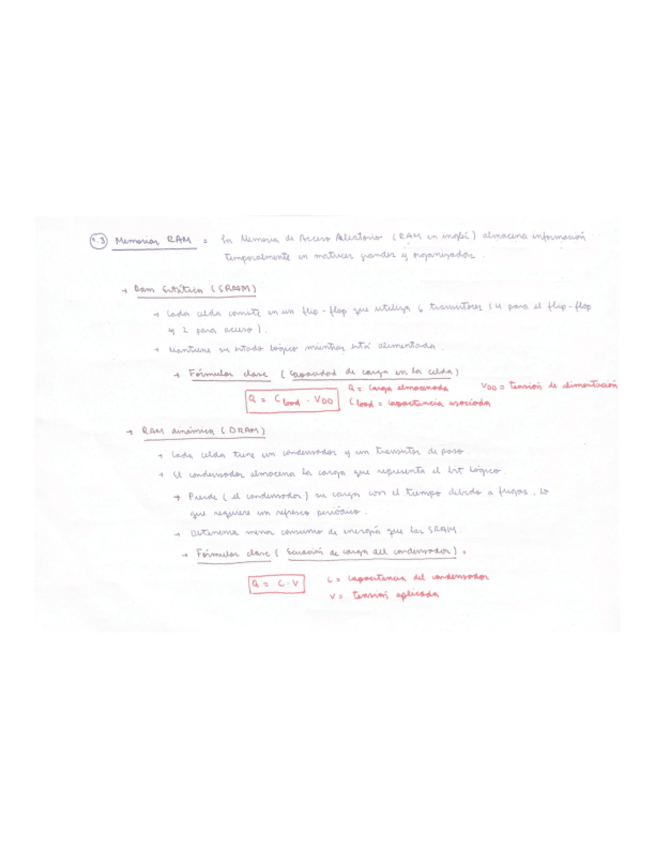 1.3 Memorias RAM = La Memoria de Acceso Aleatorio (RAM en inglés) almacena información
temporalmente en matrices grandes y organizadas.
→ Ram Estática (SRAM)
→ Cada celda consiste en un flip-flop que utiliza 6 transistores (4 para el flip-flop
y 2 para acceso).
→ Mantiene su estado lógico mientras está alimentada.
→ Fórmulas clave (Capacidad de carga en la celda)
Q = C load · VDD
Q = Carga almacenada
VDD = Tensión de alimentación
C load = Capacitancia asociada
→ RAM dinámica (DRAM)
→ Cada celda tiene un condensador y un transistor de paso.
→ El condensador almacena la carga que representa el bit lógico.
→ Pierde (el condensador) su carga con el tiempo debido a fugas, lo
que requiere un refresco periódico.
→ menor consumo de energía que las SRAM.
→ Fórmulas clave (Ecuación de carga del condensador) =
Q = C · V
C = Capacitancia del condensador
V = Tensión aplicada